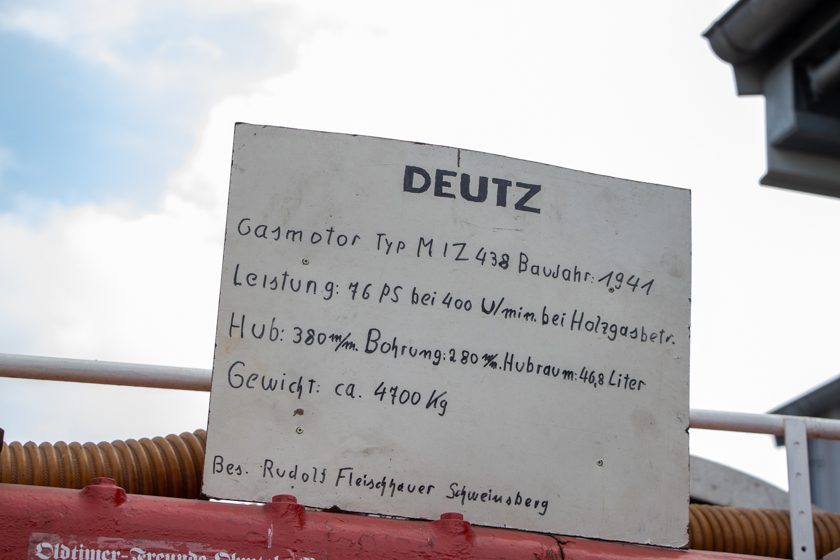 DEUTZ
Gasmotor Typ M I Z 438 Baujahr: 1941
Leistung: 76 PS bei 400 U/min. bei Holzgasbetr.
Hub: 380 m/m. Bohrung: 280 m/m. Hubraum: 46,8 Liter
Gewicht: ca. 4700 Kg
Bes. Rudolf Fleischhauer Schweinsberg
Oldtimer-Freunde